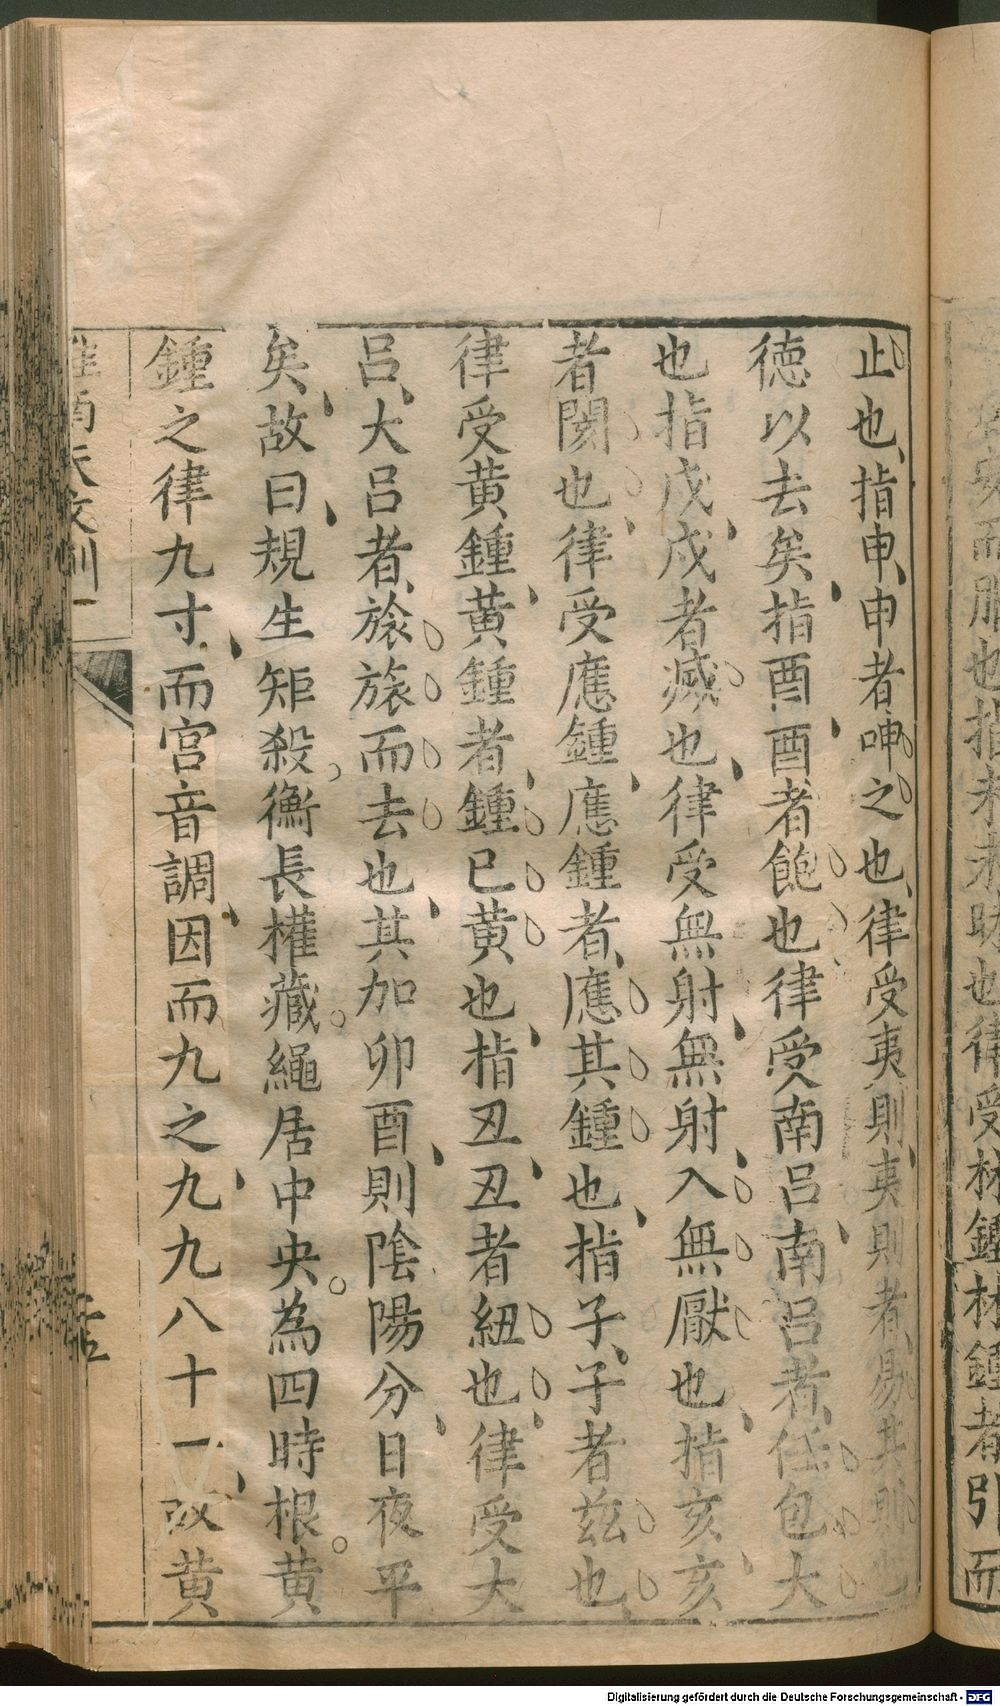 止也指申申者呻之也律受夷則夷則者易其則也
德以去矣指酉酉者飽也律受南呂南呂者任包大
也指戌戌者滅也律受無射無射入無厭也指亥亥
者閡也律受應鍾應鍾者應其鍾也指子子者兹也
律受黄鍾黄鍾者鍾已黄也指丑丑者紐也律受大
呂大呂者旅旅而去也其加卯酉則陰陽分日夜平
矣故曰規生矩殺衡長權藏繩居中央為四時根黄
鍾之律九寸而宫音調因而九之九九八十一故黄
淮南天文訓一
而服也指未未昧也律受林鍾林鍾者引而
Digitalisierung gefördert durch die Deutsche Forschungsgemeinschaft - DFG